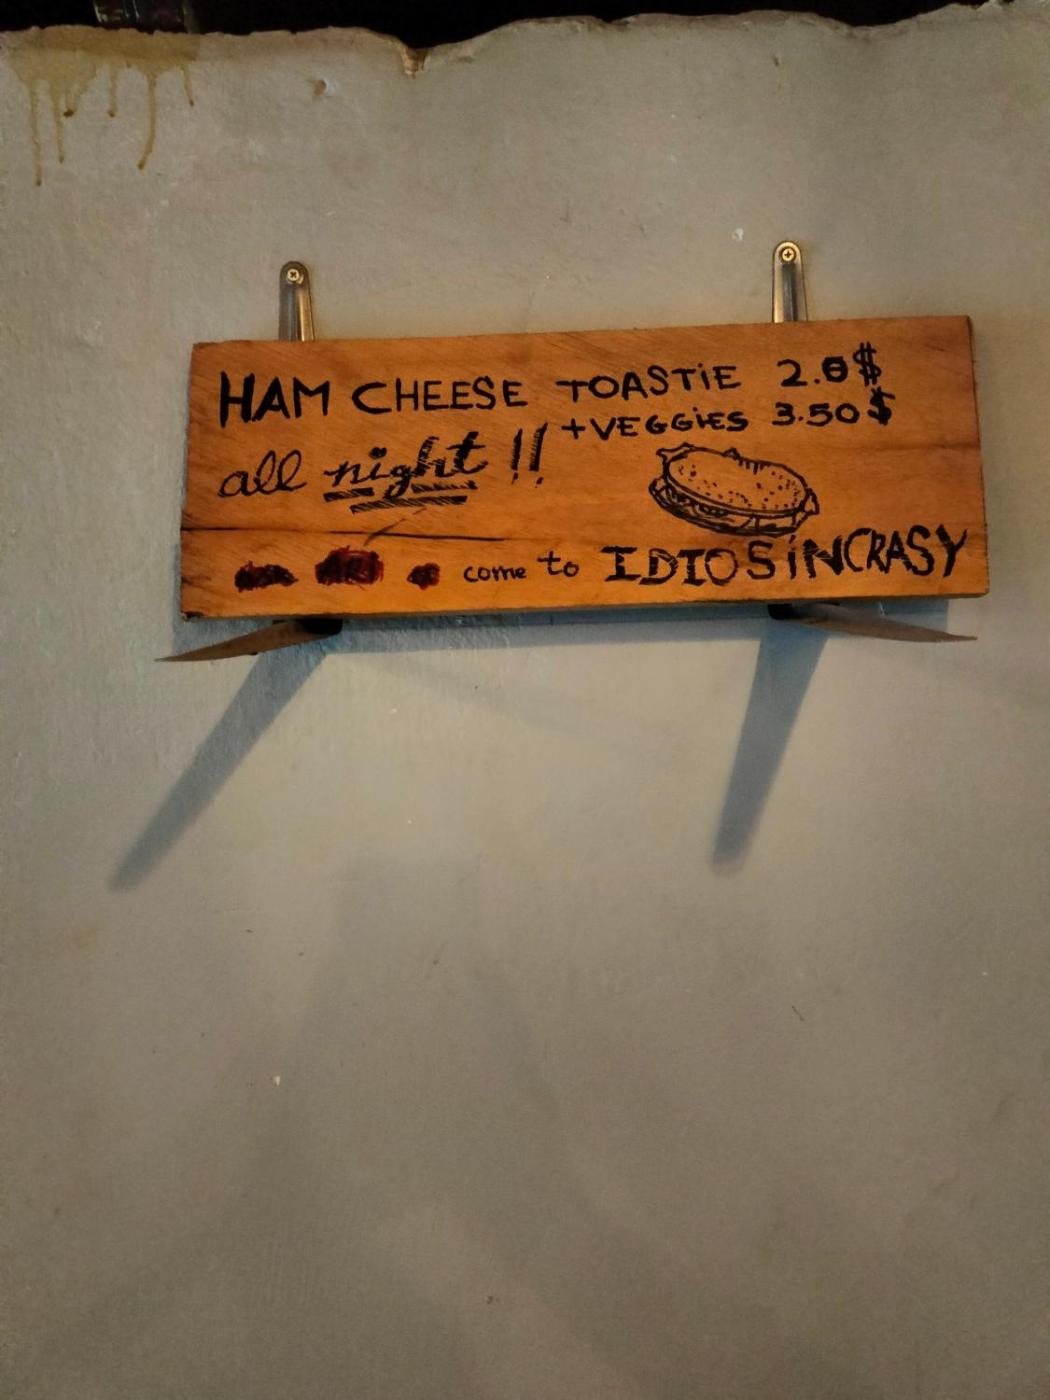 HAM CHEESE TOASTiE 2.0$
+VEGGiES 3.50$
all night !!
come to IDIOSiNCRASY